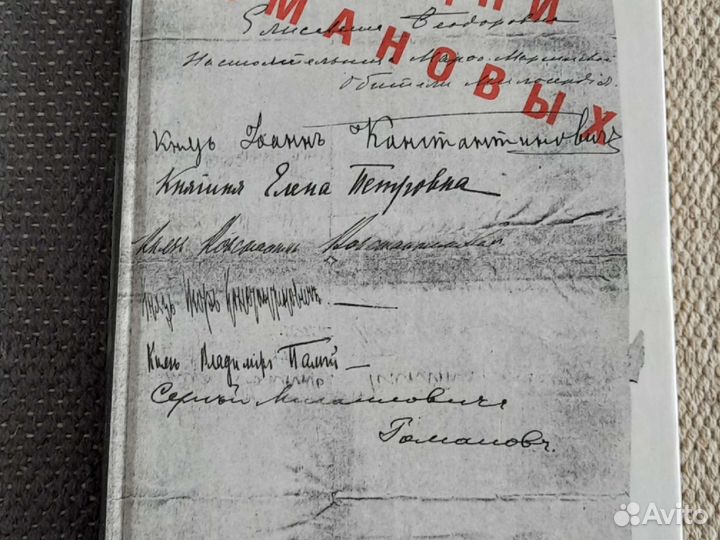 НИ
МАНОВЫХ
Елисавета Ѳеодоровна
Настоятельница Марѳо-Маріинской
Обители Милосердія.
Князь Іоаннъ Константиновичъ
Княгиня Елена Петровна
Князь Константинъ Константиновичъ
Князь Игорь Константиновичъ
Князь Владиміръ Палѣй
Сергѣй Михаиловичъ
Романовъ.
Avito